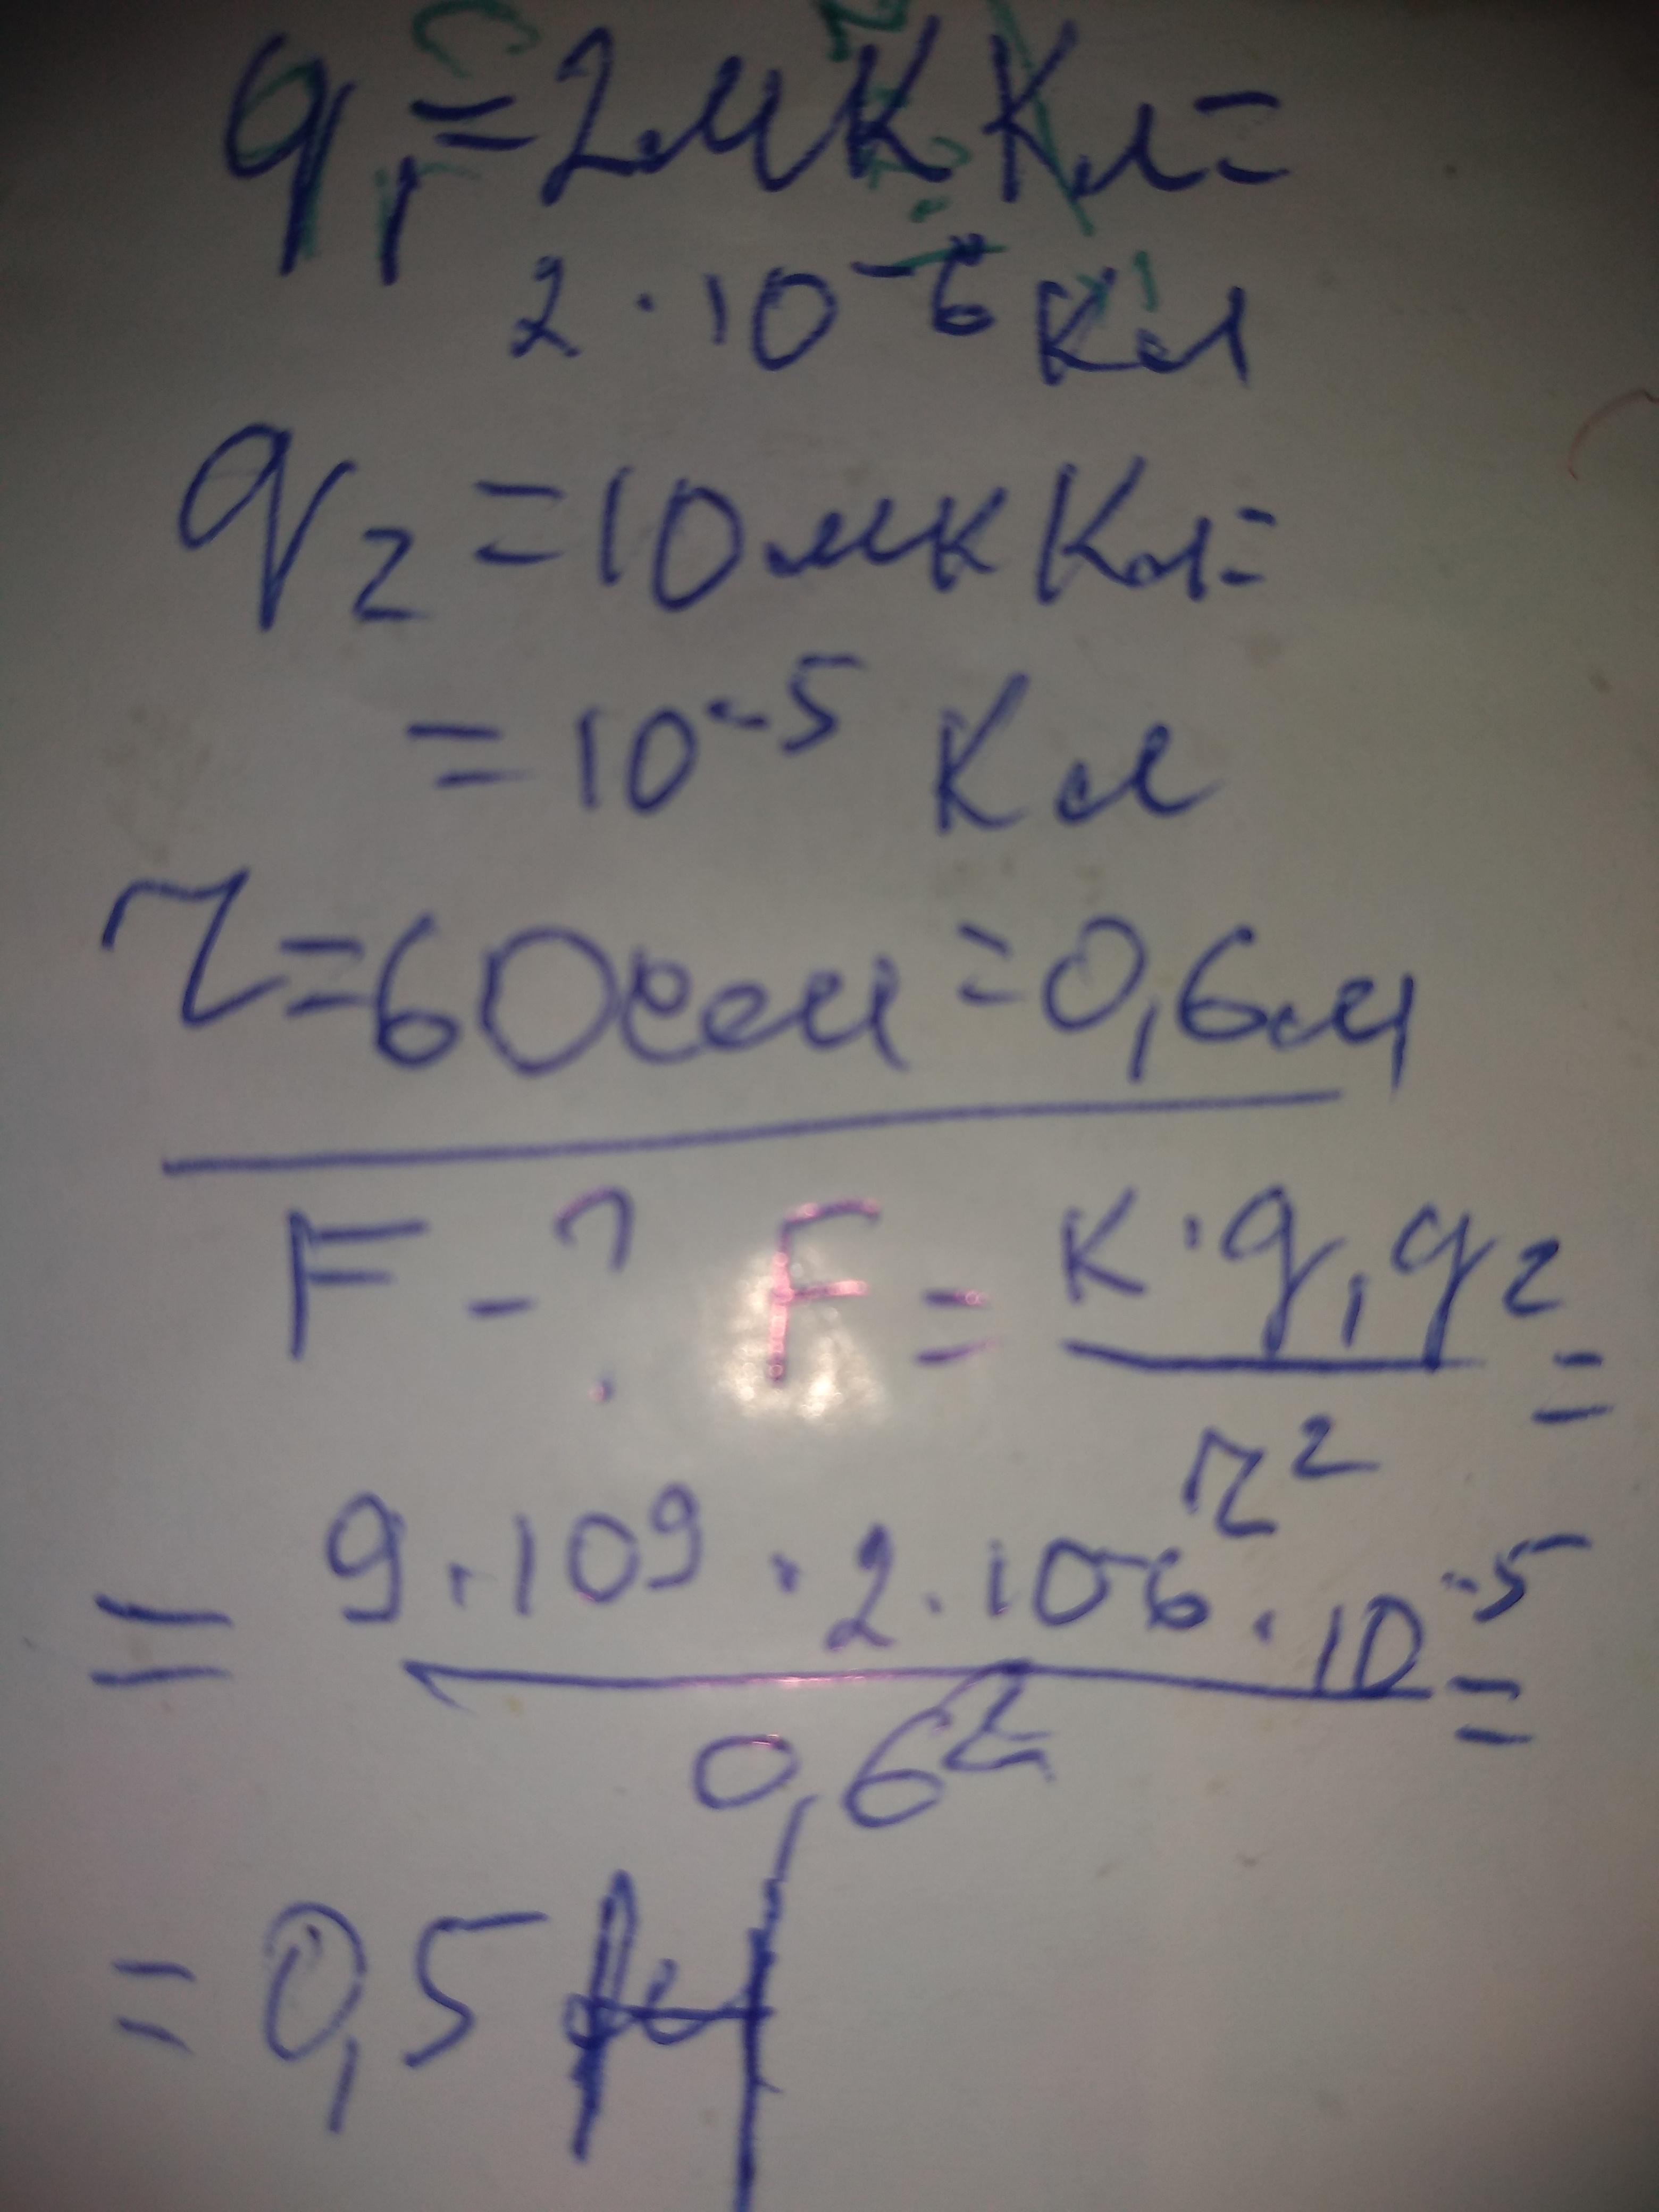 q₁ = 2мкКл =
2 · 10⁻⁶ Кл
q₂ = 10мкКл =
= 10⁻⁵ Кл
r = 60см = 0,6м
F - ? F = к · q₁q₂ / r² =
= 9 · 10⁹ · 2 · 10⁻⁶ · 10⁻⁵ / 0,6² =
= 0,5 Н